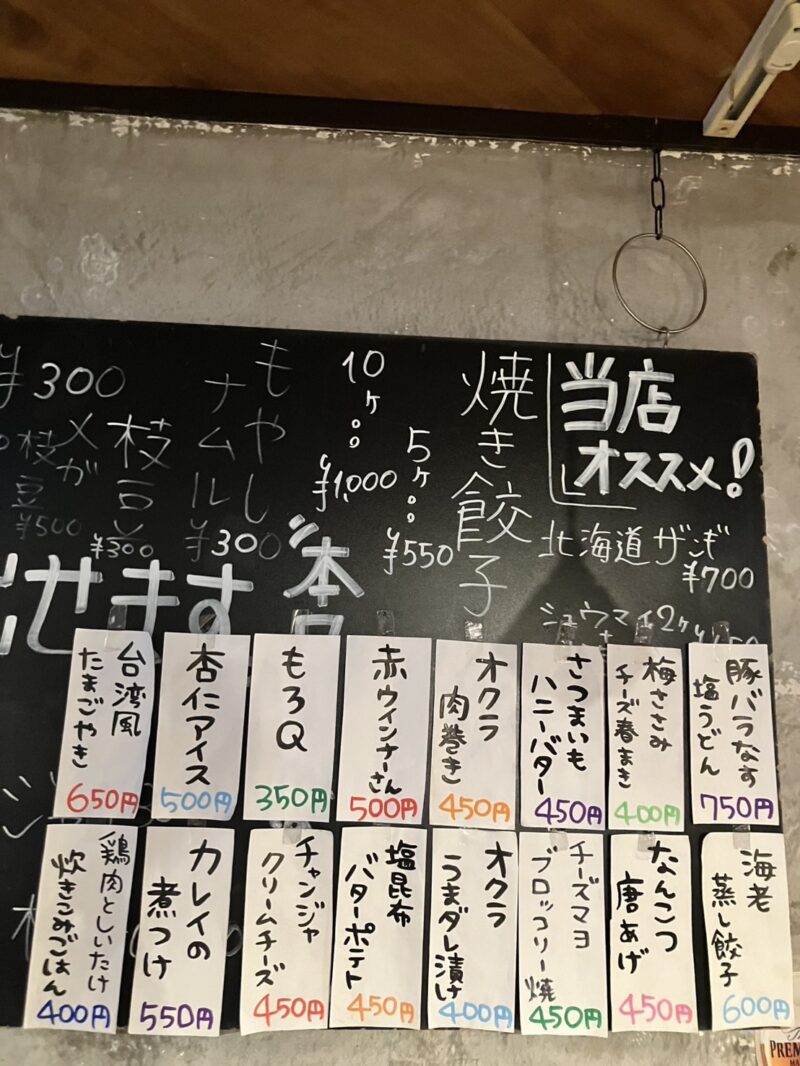 当店
オススメ!
北海道ザンギ
¥700
シュウマイ2ヶ
焼き餃子
5ヶ
¥550
10ヶ
¥1,000
もやし
ナムル
¥300
枝豆
¥300
メガ
枝豆
¥500
¥300
本日
せます
豚バラなす
塩うどん
750円
梅ささみ
チーズ春まき
400円
さつまいも
ハニーバター
450円
オクラ
肉巻き
450円
赤ウインナーさん
500円
もろQ
350円
杏仁アイス
500円
台湾風
たまごやき
650円
海老
蒸し餃子
600円
なんこつ
唐あげ
450円
チーズマヨ
ブロッコリー焼
450円
オクラ
うまダレ漬け
400円
塩昆布
バターポテト
450円
チャンジャ
クリームチーズ
450円
カレイの
煮つけ
550円
鶏肉としいたけ
炊きこみごはん
400円